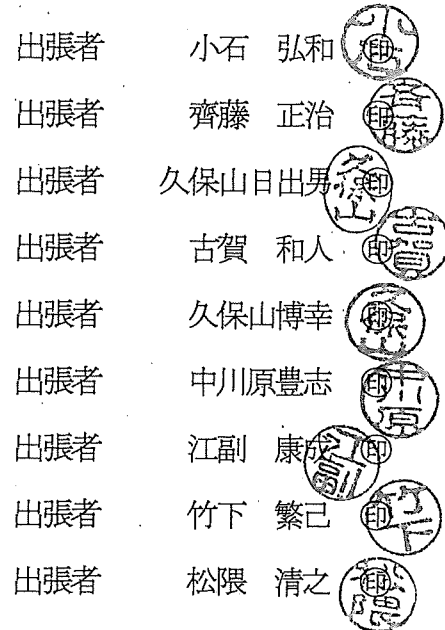 出張者 小石 弘和 ㊞
出張者 齊藤 正治 ㊞
出張者 久保山日出男 ㊞
出張者 古賀 和人 ㊞
出張者 久保山博幸 ㊞
出張者 中川原豊志 ㊞
出張者 江副 康成 ㊞
出張者 竹下 繁己 ㊞
出張者 松隈 清之 ㊞